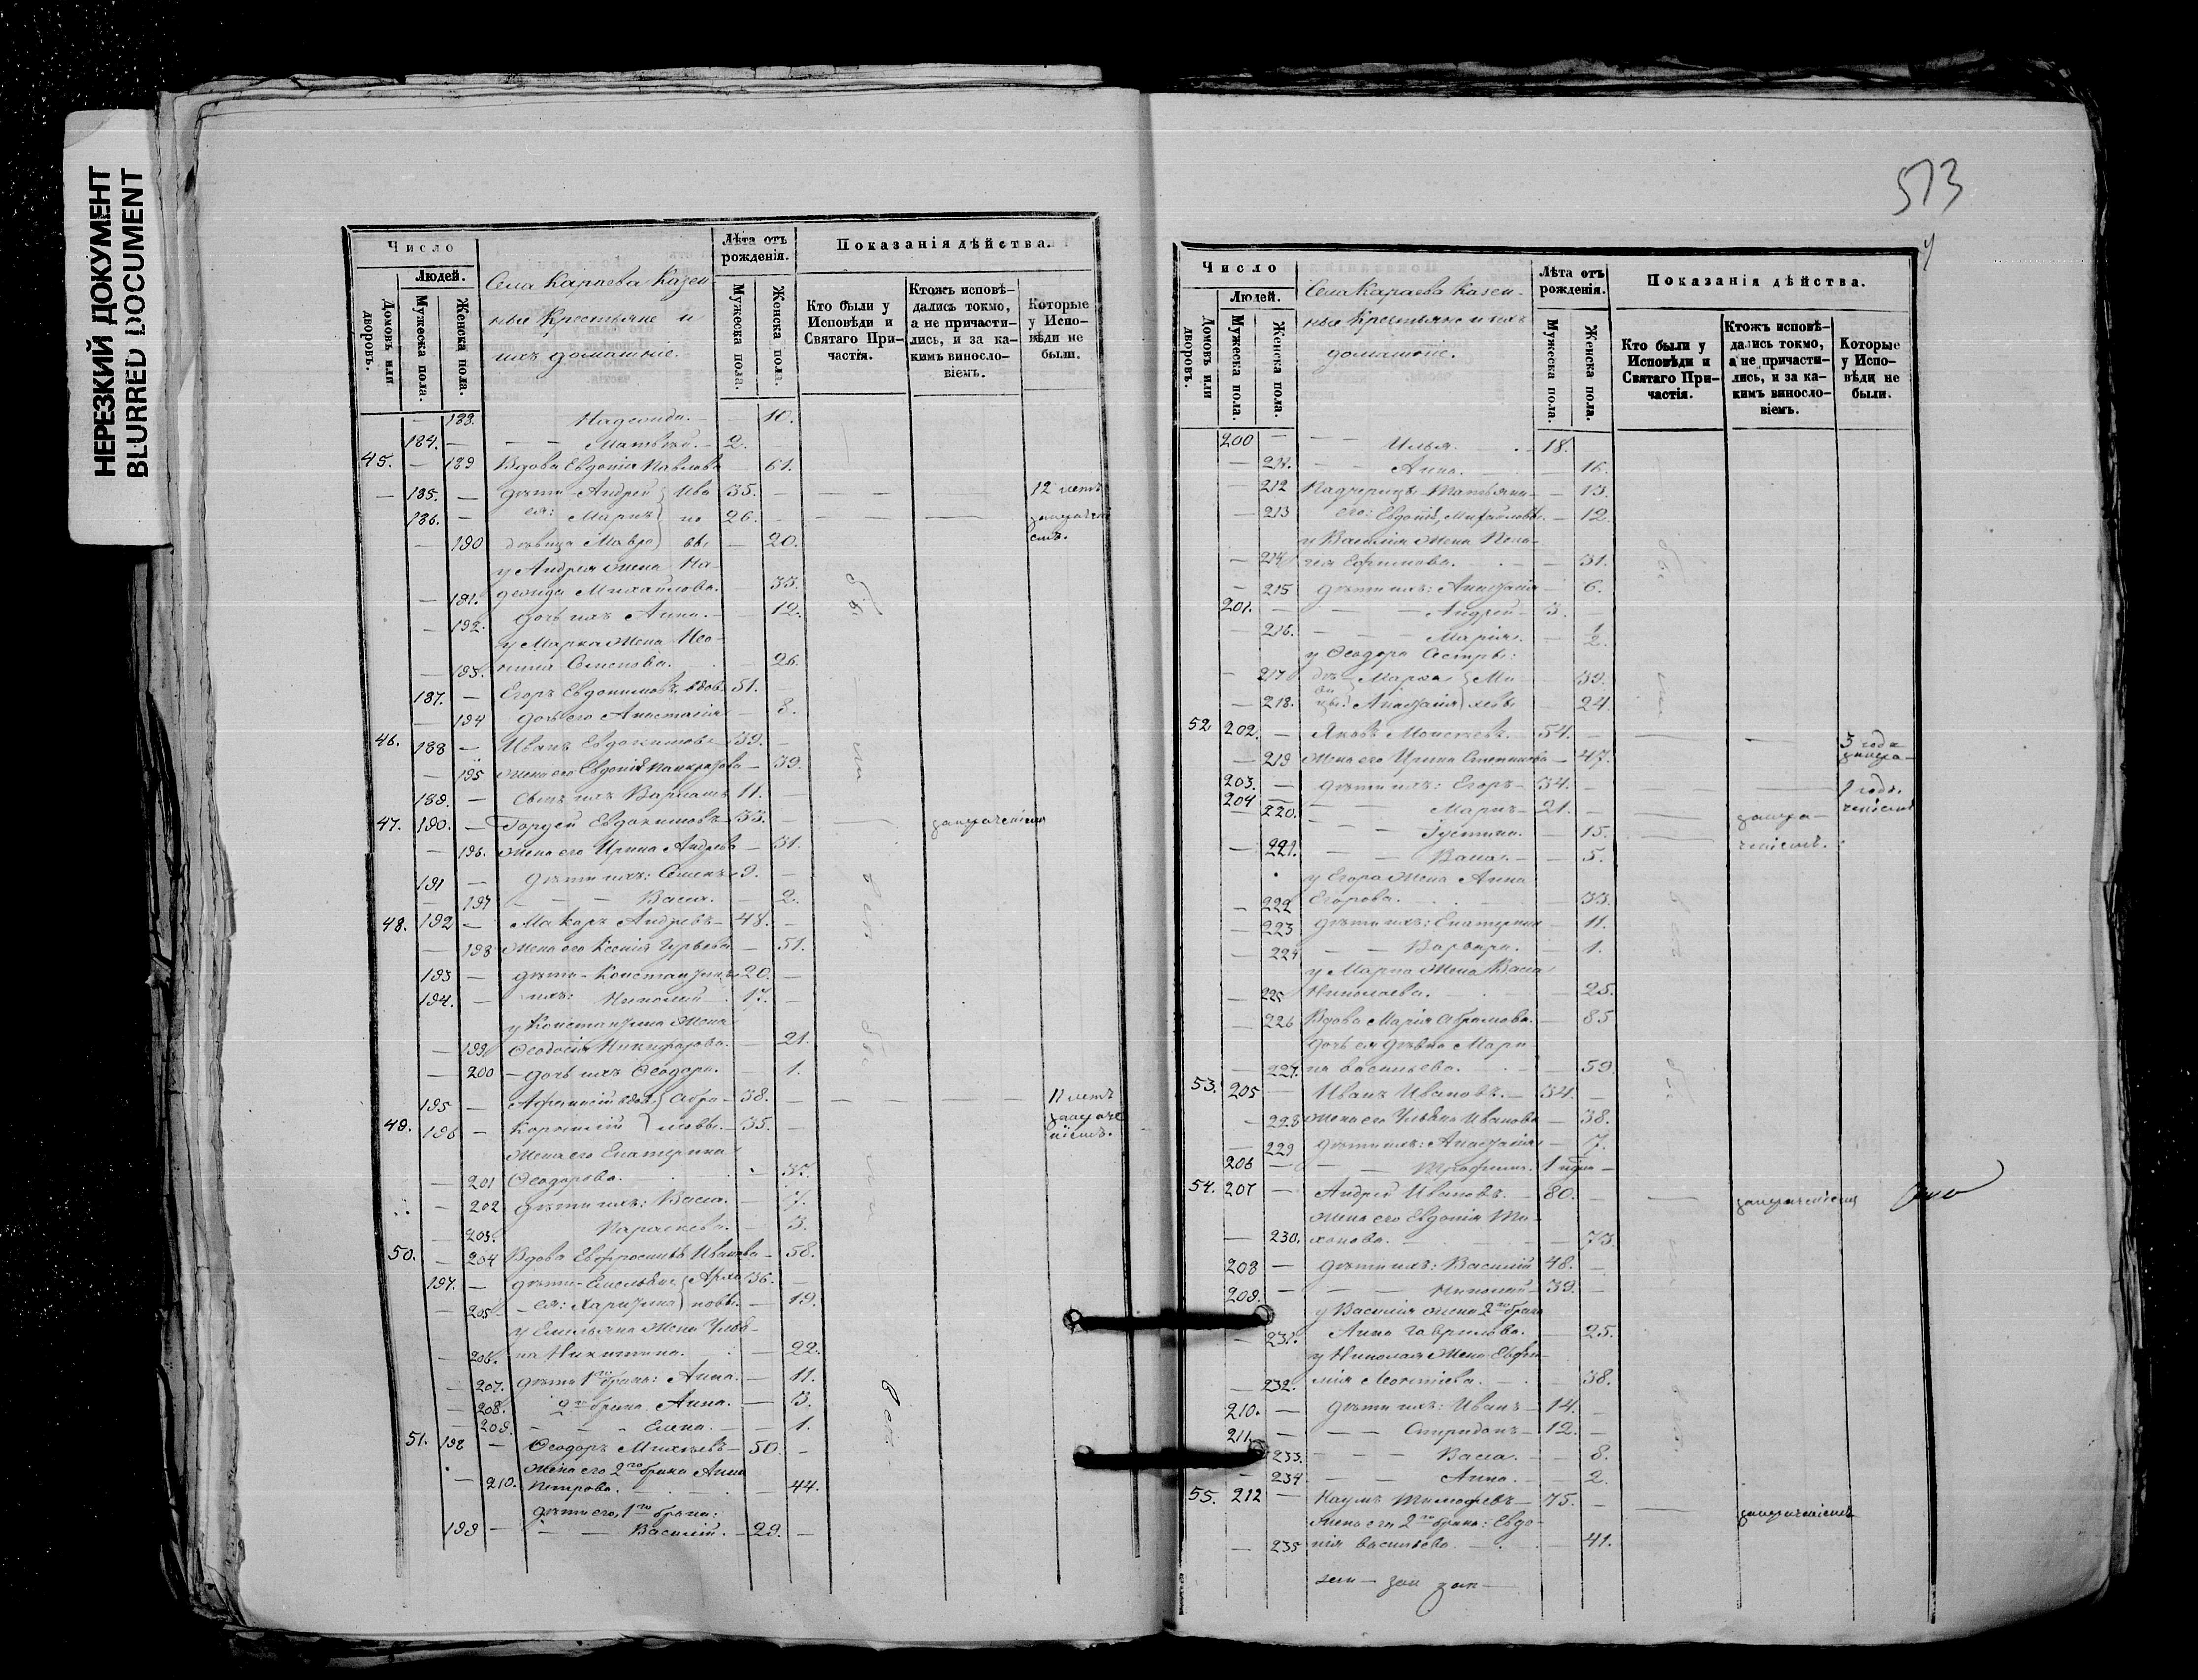 НЕРЕЗКИЙ ДОКУМЕНТ
BLURRED DOCUMENT
Число
Людей.
Домовъ или дворовъ.
Мужеска пола.
Женска пола.
Села Караева Казен-
ные Крестьяне и
ихъ домашніе.
Лѣта отъ рожденія.
Мужеска пола.
Женска пола.
Показанія дѣйства.
Кто были у Исповѣди и Святаго При-частія.
Ктожъ исповѣ-дались токмо, а не причасти-лись, и за ка-кимъ винослo-віемъ.
Которые у Испо-вѣди не были.
— 183. Надежда. — — 10.
184. — — — Матвѣй. — 2.
45. — 189 Вдова Евдокія Павлова — 61.
— 185. — дѣти Андрей Ива 35. — — — 12 летъ
186. — ея: Маркъ но 26. — — —
— 190 дѣвица Мавра вы — 20.
у Андрея жена На-
— 191. дежда Михайлова. — 35.
— 192. дочь ихъ Анна. — — 12.
у Марка жена Нео-
— 193. нила Семенова. — 26.
187. — Егоръ Евдокимовъ вдов. 51. —
— 194 дочь его Анастасія — 8.
46. 188 — Иванъ Евдокимовъ 39. —
— 195 жена его Евдокія Панкратова — 39.
189. — сынъ ихъ Варламъ 11. —
47. 190. — Гордей Евдокимовъ 33. —
— 196. жена его Ирина Андреева — 31.
191 — дѣти ихъ: Семенъ 9. —
— 197 — — Васса. — 2.
48. 192 — Макаръ Андреевъ — 48. —
— 198 жена его Ксенія Гурьева — 51.
193 — дѣти Константинъ 20. —
194. — ихъ: Николай — 17. —
у Константина жена
— 199 Ѳеодосія Никифорова. — 21.
— 200 — дочь ихъ Ѳеодора. — 1.
195 — Афанасій вдов. Абра- 38. — — — 11 летъ
49. 196 — Корнилій мовы. — 35. —
жена его Екатерина
— 201 Ѳеодорова. — 37.
— 202 дѣти ихъ: Васса. — 7.
— 203. Параскева. — 3.
50. — 204 Вдова Евфросинья Иванова — 58.
197. — дѣти Емельянъ Архи 36. —
— 205 — ея: Харитина повы. — 19.
у Емельяна жена Улья-
— 206. на Никитина. — 22.
— 207. дѣти 1го брака: Анна. — 11.
— 208. 2го брака Анна. — 3.
— 209. — — Елена. — 1.
51. 198 — Ѳеодоръ Михѣевъ — 50. —
жена его 2го брака Анна
— 210. Петрова. — 44.
дѣти его 1го брака:
199 — — — Василій. — 29. —
573
Число
Людей.
Домовъ или дворовъ.
Мужеска пола.
Женска пола.
Села Караева казен-
ные Крестьяне и ихъ
домашніе.
Лѣта отъ рожденія.
Мужеска пола.
Женска пола.
Показанія дѣйства.
Кто были у Исповѣди и Святаго При-частія.
Ктожъ исповѣ-дались токмо, а не причасти-лись, и за ка-кимъ виносло-віемъ.
Которые у Испо-вѣди не были.
200 — — — Илья. — 18.
— 211. — — Анна. — — 16.
— 212 Падчерицы Татьяна — 13.
— 213 его: Евдокія Михайловы. — 12.
у Василія жена Пела-
— 214 гея Ефимова. — 31.
— 215 дѣти ихъ: Анастасія — 6.
201. — — — Андрей — 3. —
— 216. — — Марія. — 1/2.
у Ѳеодора сестры:
— 217 дѣ Марѳа Ми — 39.
— 218. вицы: Анастасія хеевы — 24.
52 202. — Яковъ Моисеевъ. — 54. — — — 3 года
— 219 жена его Ирина — 47.
203. — дѣти ихъ: Егоръ — 34. —
204 — — Маркъ — 21. —
220. — — Густина. — 15.
— 221. — — Васса. — — 5.
у Егора жена Анна
— 222 Егорова. — 33.
— 223 дѣти ихъ: Екатерина — 11.
— 224 — — Варвара. — 1.
у Марка жена Васса
— 225 Николаева. — 25.
— 226 Вдова Марія Абрамова. — 85
дочь ея дѣвка Мари
— 227. на Васильева. — 59.
53. 205 — Иванъ Ивановъ. — 34. —
— 228 жена его Ульяна Иванова — 38.
— 229 дѣти ихъ: Анастасія — 7.
206 — — — Трофимъ. 1
54. 207 — Андрей Ивановъ. — 80. —
жена его Евдокія Ти-
— 230. ханова. — 73.
208 — дѣти ихъ: Василій 48. —
209. — — — Николай — 39. —
у Василія жена 2го брака
— 231. Анна Гаврилова. — 25.
у Николая жена Евфи-
— 232. мія Леонтіева. — 38.
210. — дѣти ихъ: Иванъ — 14. —
211. — — — Спиридонъ — 12. —
— 233. — — Васса. — — 8.
— 234 — — Анна. — — 2.
55. 212 — Наумъ Тимофеевъ — 75. —
жена его 2го брака: Евдо-
— 235 кія Васильева. — 41.